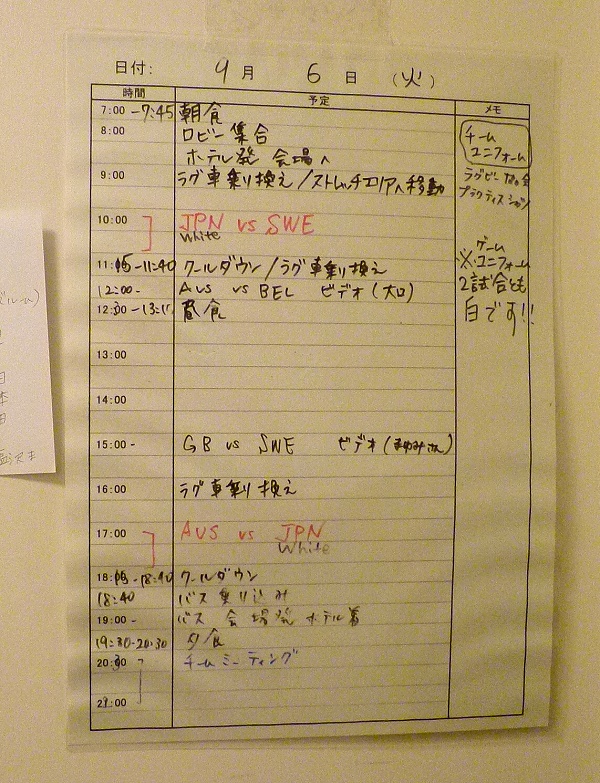 日付: 9月 6日 (火)
時間 予定 メモ
7:00 -7:45 朝食
8:00 ロビー集合
ホテル発 会場へ
9:00 ラグ車乗り換え/ストレッチエリアへ移動
10:00 JPN vs SWE
White
11:05-11:40 クールダウン/ラグ車乗り換え
12:00- AUS vs BEL ビデオ(大口)
12:30 -13:15 昼食
13:00
14:00
15:00- GB vs SWE ビデオ(まゆみさん)
16:00 ラグ車乗り換え
17:00 AUS vs JPN
White
18:05-18:40 クールダウン
18:40 バス乗り込み
19:00- バス 会場発 ホテル着
19:30-20:30 夕食
20:30 チームミーティング
21:00
チーム
ユニフォーム
ラグビー
プラクティスシャツ
ゲーム
※ユニフォーム
2試合とも
白です!!